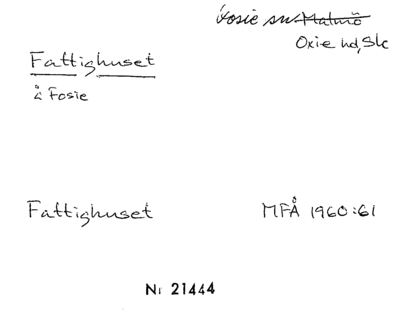 Fosie sn. Malmö
Oxie hd, Sk
Fattighuset
å Fosie
Fattighuset MFÅ 1960:61
Nr 21444